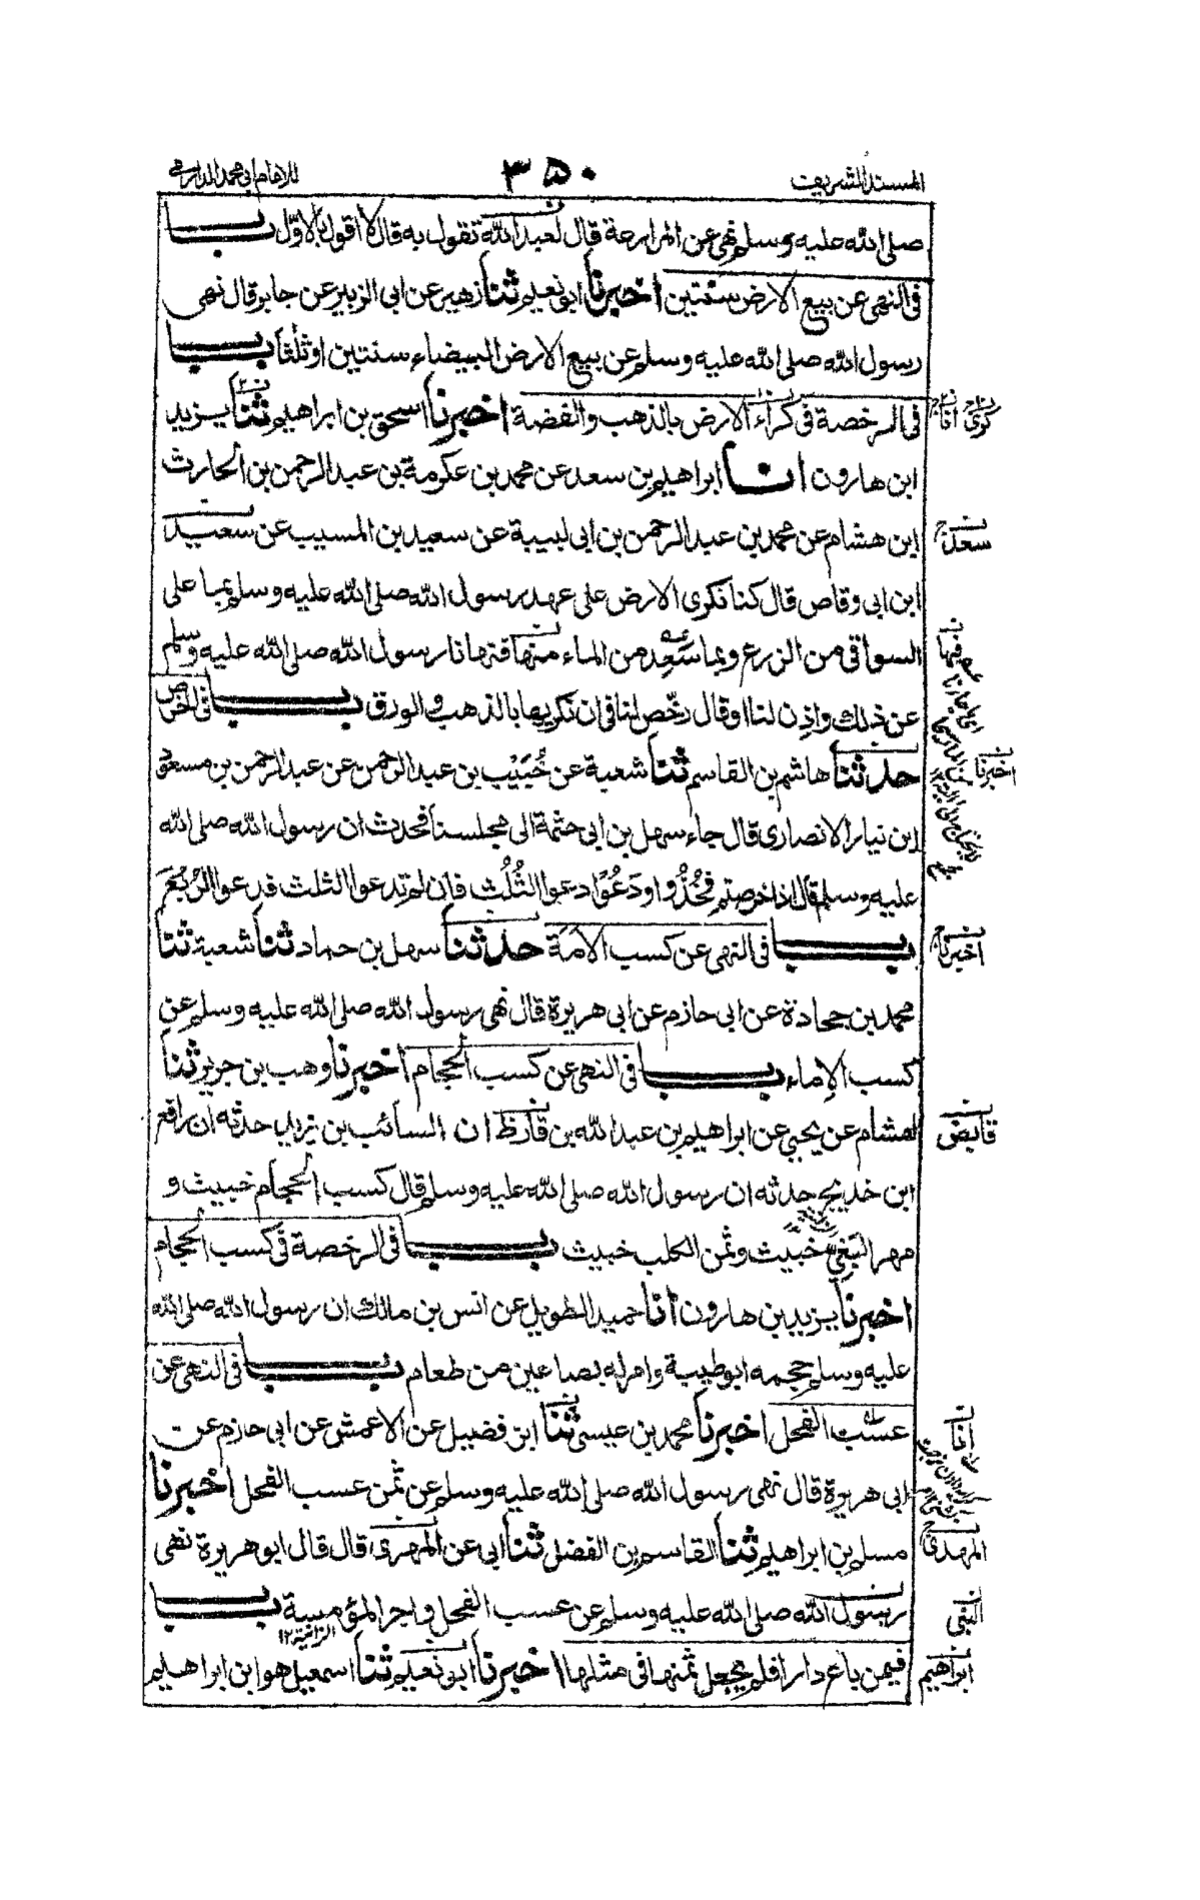 المسند الشريف
۳۵۰
للامام ابى محمد الدارمى
صلى الله عليه وسلم نهى عن المزابنة قال لعبد الله تقول به قال لا اقول بالاول باب
فى النهى عن بيع الارض سنتين اخبرنا ابو نعيم ثنا زهير عن ابى الزبير عن جابر قال نهى
رسول الله صلى الله عليه وسلم عن بيع الارض البيضاء سنتين او ثلثا باب
فى الرخصة فى كراء الارض بالذهب والفضة اخبرنا اسحق بن ابراهيم ثنا يزيد
ابن هارون انا ابراهيم بن سعد عن محمد بن عكرمة بن عبد الرحمن بن الحارث
ابن هشام عن محمد بن عبد الرحمن بن ابى لبيبة عن سعيد بن المسيب عن سعيد
ابن ابى وقاص قال كنا نكرى الارض على عهد رسول الله صلى الله عليه وسلم بما على
السواقى من الزرع وبما سَعِد من الماء منها فنهانا رسول الله صلى الله عليه وسلم
عن ذلك واذن لنا او قال رخّص لنا فى ان نكريها بالذهب والورق باب فى الخرص
حدثنا هاشم بن القاسم ثنا شعبة عن خُبَيْب بن عبد الرحمن عن عبد الرحمن بن مسعود
ابن نيار الانصارى قال جاء سهل بن ابى حثمة الى مجلسنا فحدث ان رسول الله صلى الله
عليه وسلم قال اذا خرصتم فخُذُوا ودَعُوا دعوا الثُلُث فان لم تدعوا الثلث فدعوا الرُبُعَ
باب فى النهى عن كسب الاَمَة حدثنا سهل بن حماد ثنا شعبة ثنا
محمد بن جحادة عن ابى حازم عن ابى هريرة قال نهى رسول الله صلى الله عليه وسلم عن
كسب الاِماء باب فى النهى عن كسب الحجام اخبرنا وهب بن جرير ثنا
هشام عن يحيى عن ابراهيم بن عبد الله بن قارظ ان السائب بن يزيد حدثه ان رافع
ابن خديج حدثه ان رسول الله صلى الله عليه وسلم قال كسب الحجام خبيث و
مهر البَغِىّ خبيث وثمن الكلب خبيث باب فى الرخصة فى كسب الحجام
اخبرنا يزيد بن هارون انا حميد الطويل عن انس بن مالك ان رسول الله صلى الله
عليه وسلم حجمه ابو طيبة وامر له بصاعين من طعام باب فى النهى عن
عسب الفحل اخبرنا محمد بن عيسى ثنا ابن فضيل عن الاعمش عن ابى حازم عن
ابى هريرة قال نهى رسول الله صلى الله عليه وسلم عن ثمن عسب الفحل اخبرنا
مسلم بن ابراهيم ثنا القاسم بن الفضل ثنا ابى عن المهرى قال قال ابو هريرة نهى
رسول الله صلى الله عليه وسلم عن عسب الفحل واجر المؤمسة باب
الزانية ١٢
فيمن باع دارا فلم يجعل ثمنها فى مثلها اخبرنا ابو نعيم ثنا اسمعيل هو ابن ابراهيم
كرى
انا
سعد
اخبرنا
اخبرنا
قابض
انا
المهدى
النبى
ابراهيم